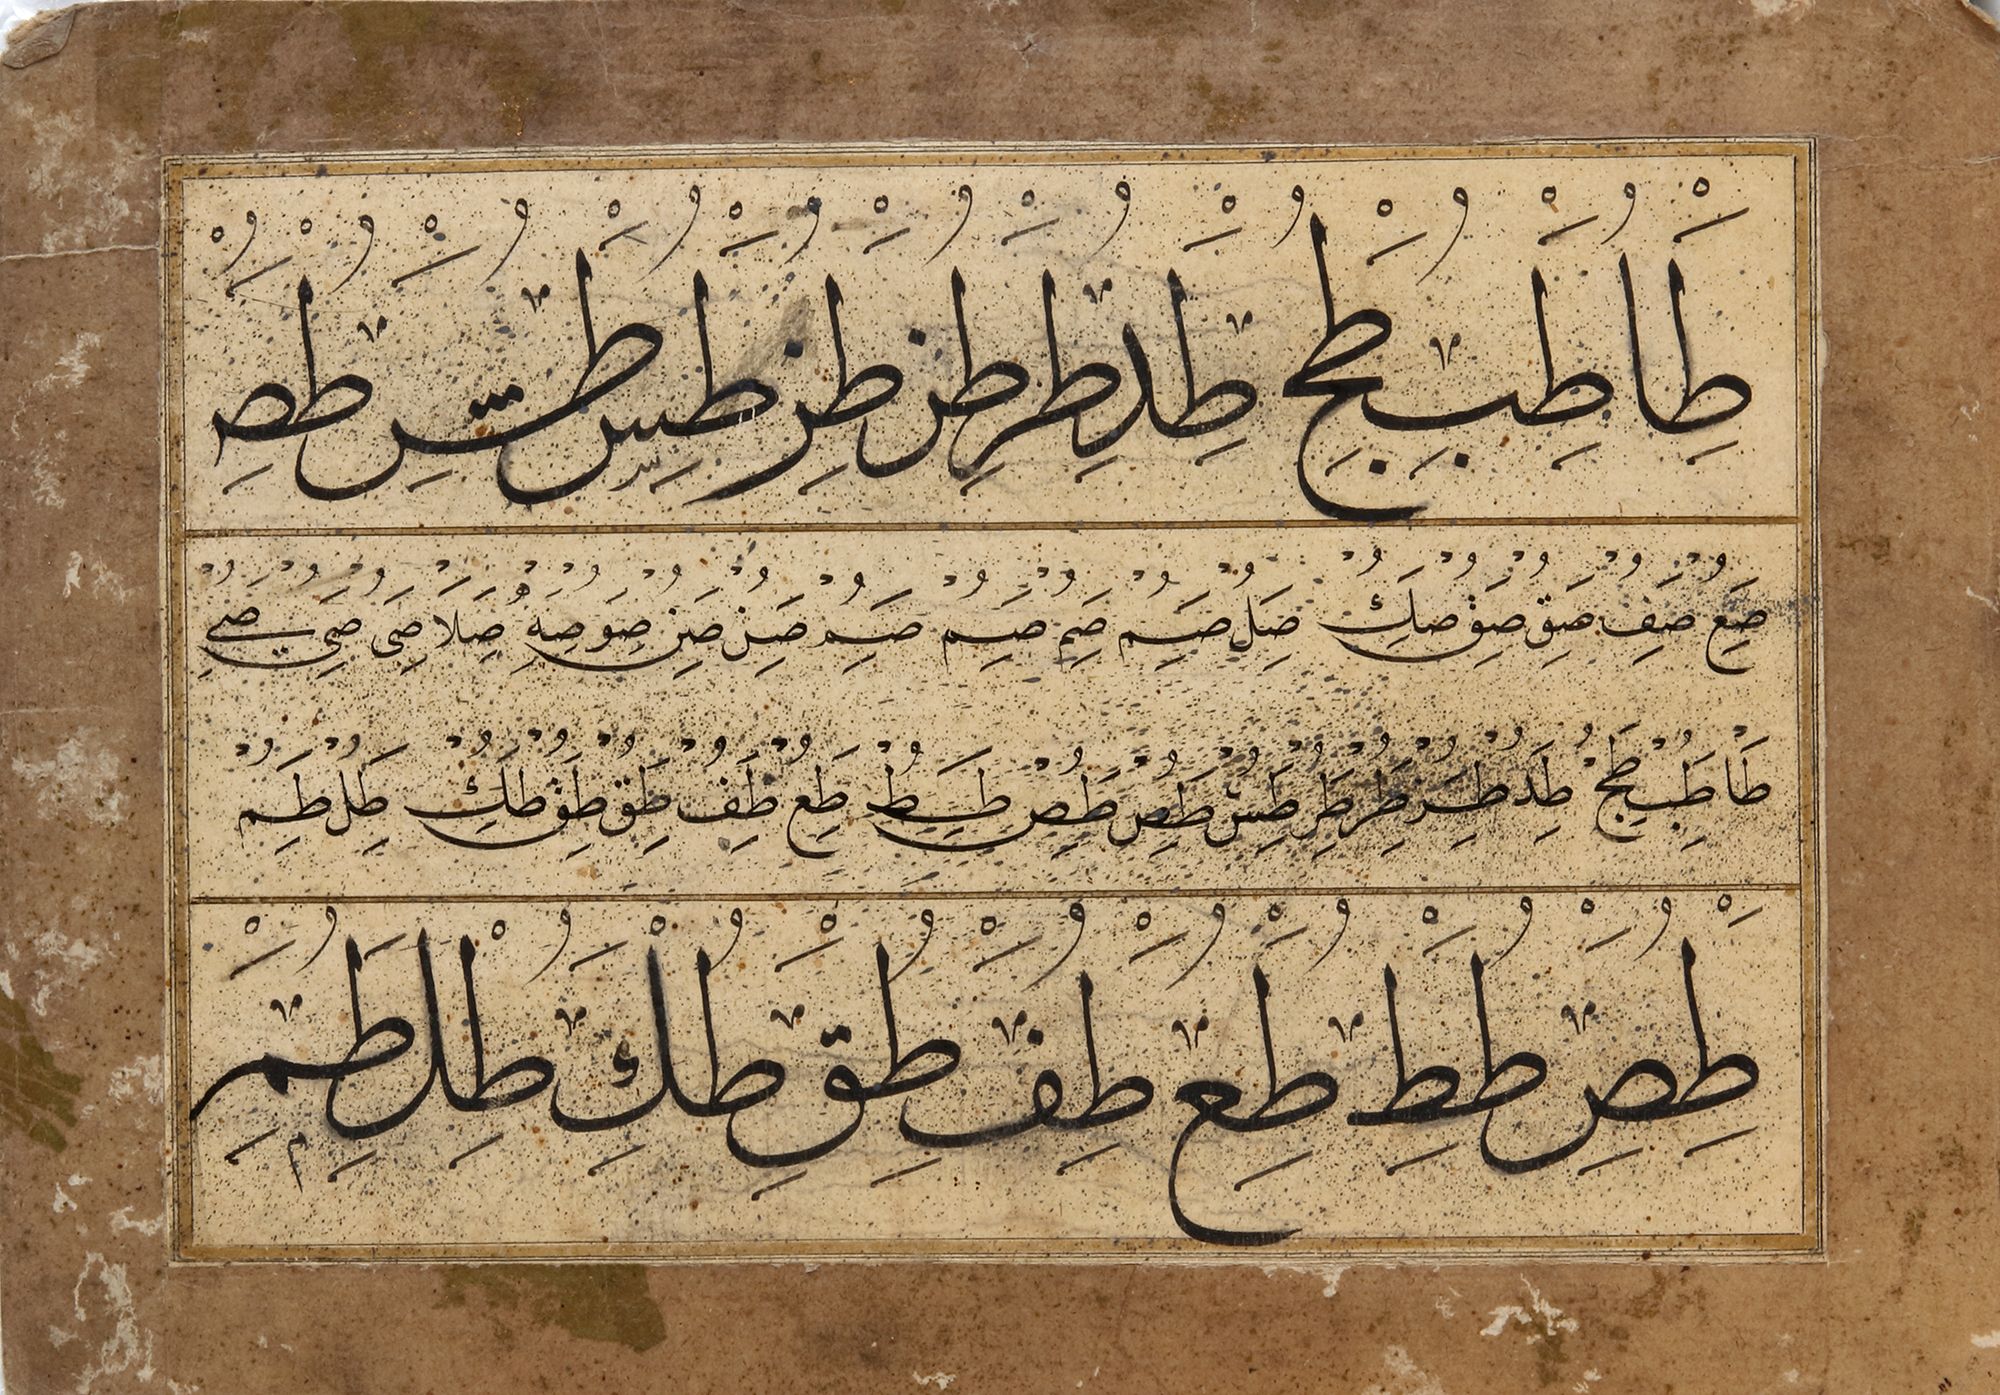 طا طب طج طد طر طز طز طس طش طص
صع صف صق صق صك صل صم صم صم صم صن صن صو صه صلا صى صى صى
طا طب طج طد طر طر طر طش طص طص طط طع طف طق طق طك طل طم
طص طط طع طف طق طك طل طم